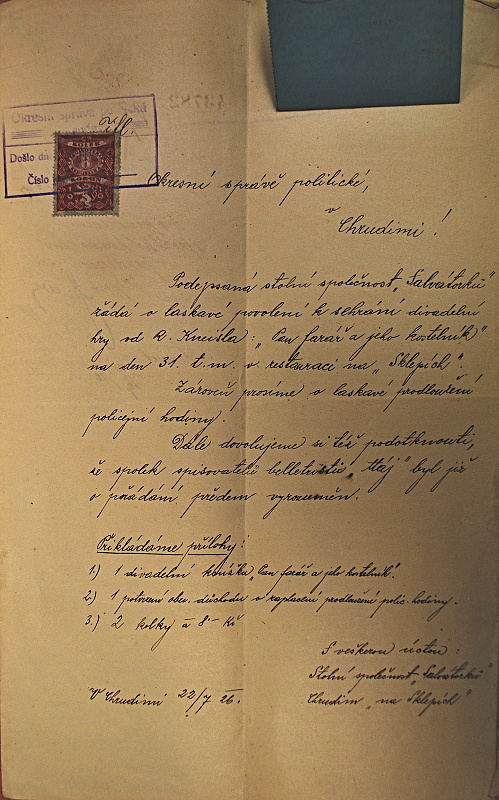 Okresní správa politická
Došlo
Číslo
KOLEK
Okresní správě politické,
v
Chrudimi!
Podepsaná stolní společnost „Salvátorků"
žádá o laskavé povolení k sehrání divadelní
hry od R. Kneisla: „Pan farář a jeho kostelník"
na den 31. t. m. v restauraci na „Sklepích".
Zároveň prosíme o laskavé prodloužení
policejní hodiny.
Dále dovolujeme si též podotknouti,
že spolek spisovatelů belletristů „Máj" byl již
o pořádání předem vyrozuměn.
Přikládáme přílohy:
1.) 1 divadelní knížka, Pan farář a jeho kostelník!
2.) 1 potvrzení obec. důchodu o zaplacení prodloužení polic. hodiny.
3.) 2 kolky à 8- Kč
S veškerou úctou:
Stolní společnost „Salvátorků"
V Chrudimi 22/7 26.
Chrudim „na Sklepích"